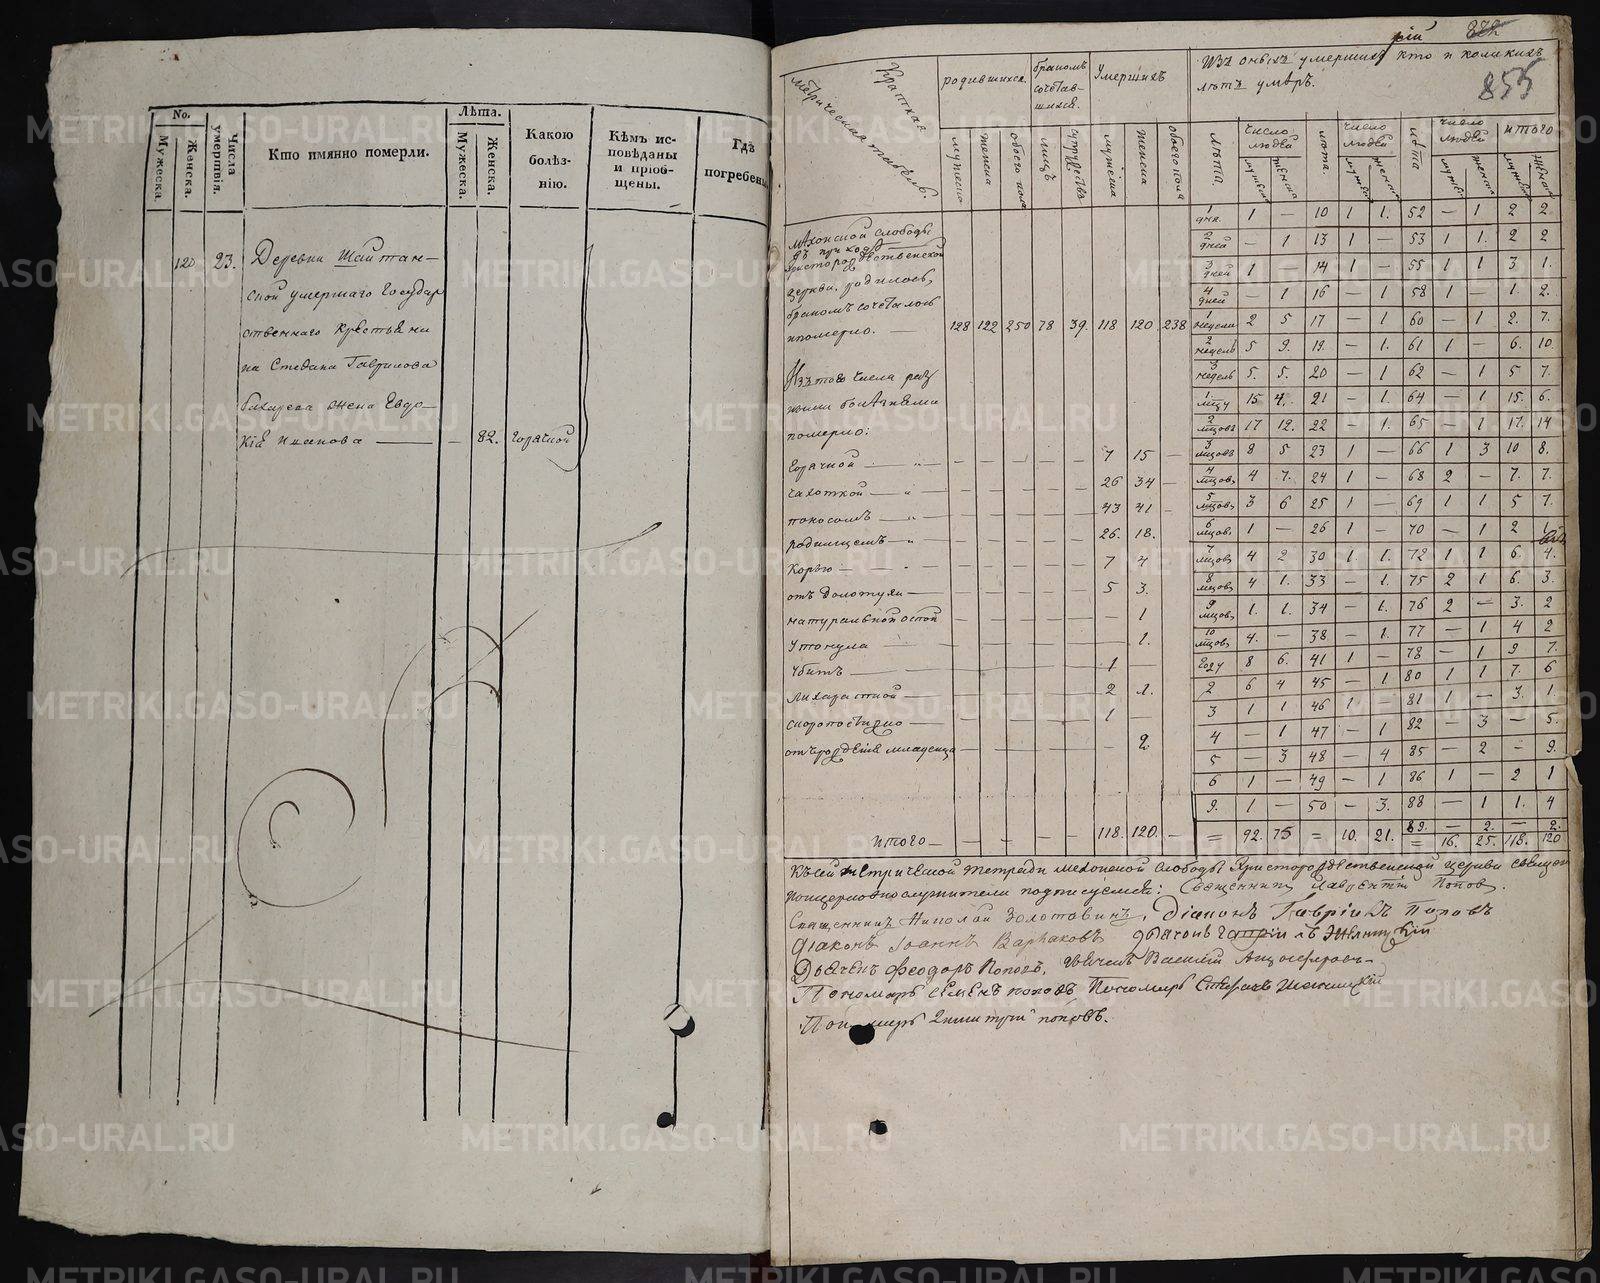 No.
Мужеска.
Женска.
Числа умертвія.
Кто имянно померли.
Лѣта.
Мужеска.
Женска.
Какою болѣз-
нію.
Кѣмъ ис-
повѣданы
и пріоб-
щены.
Гдѣ
погребены
120 23. Деревни Шайтан-
ской умершаго Государ
ственнаго крестьяни
на Стефана Гаврилова
жена Евдо-
кія Иванова — — 82. горячкой
855
Краткая
метрическая табель.
родившихся
бракомъ
сочетав-
шихся.
Умершихъ
Изъ оныхъ умершихъ кто и коликихъ
лѣтъ умеръ.
мужеска
женска
обоего пола
лицъ
супружествъ
мужеска
женска
обоего пола
лѣта.
число людей
лѣта.
число людей
лѣта
число людей
итого
Мехонской слободы
въ приходѣ
Христорождественской
церкви родилось,
бракомъ сочеталось
и померло. — 128 122 250 78 39. 118 120 238
Изъ того числа раз
ными болѣзнями
померло:
горячкой — 7 15 —
чахоткой — 26 34 —
поносомъ — 43 41 —
родимцемъ — 26. 18. —
Корью — 7 4
отъ золотухи — 5 3.
натуральной оспой — 1
утонула — 1.
убитъ — 1 —
лихорадкой — 2 1.
скоропостижно — 1
— 2
итого — 118. 120. —
1 дня. 1 — 10 1 1. 52 — 1 2 2.
2 дней — 1 13 1 — 53 1 1. 2 2
3 дней 1 — 14 1 — 55 1 1 3 1.
4 дней — 1 16 — 1 58 1 — 1. 2.
1 недели 2 5 17 — 1 60 — 1 2. 7.
2 недель 5 9. 19. — 1. 61 1 — 6. 10
3 недель 5. 5. 20 — 1 62 — 1 5 7.
1 мцу 15 4. 21 — 1. 64 — 1 15. 6.
2 мцовъ 17 12. 22 — 1. 65 — 1 17. 14
3 мцовъ 8 5 23 1 — 66 1 3 10 8.
4 мцовъ 4 7. 24 1 — 68 2 — 7. 7.
5 мцовъ 3 6 25 1 — 69 1 1 5 7.
6 мцовъ 1 — 26 1 — 70 — 1 2 1.
7 мцовъ 4 2 30 1 1. 72 1 1 6. 4.
8 мцовъ 4 1. 33 — 1. 75 2 1 6. 3.
9 мцовъ 1. 1. 34 — 1. 76 2 — 3. 2
10 мцовъ 4. — 38 — 1. 77 — 1 4 2
году 8 6. 41 1 — 78 — 1 9 7.
2 6 4 45 — 1 80 1 1 7. 6
3 1 1 46 1 — 81 1 — 3. 1.
4 — 1 47 — 1 82 — 3 — 5.
5 — 3 48 — 4 85 — 2 — 9.
6 1 — 49 — 1 86 1 — 2 1
9. 1 — 50 — 3. 88 — 1 1. 4
89. — 2. — 2.
= 92. 75 = 10. 21. = 16. 25. 118. 120
Къ сей метрической тетради Мехонской слободы Христорождественской церкви священ
ноцерковнослужители подписуемся: Священникъ Лаврентій Попов.
Священникъ Николай Золотавинъ, Діаконъ Гавріилъ Поповъ
Діаконъ Іоаннъ Варлаковъ дьячокъ Гавріилъ
Дьячекъ Феодоръ Поповъ, дьячекъ Василій
Пономарь Семенъ поповъ Пономарь Стефанъ
Пономарь поповъ.
METRIKI.GASO-URAL.RU